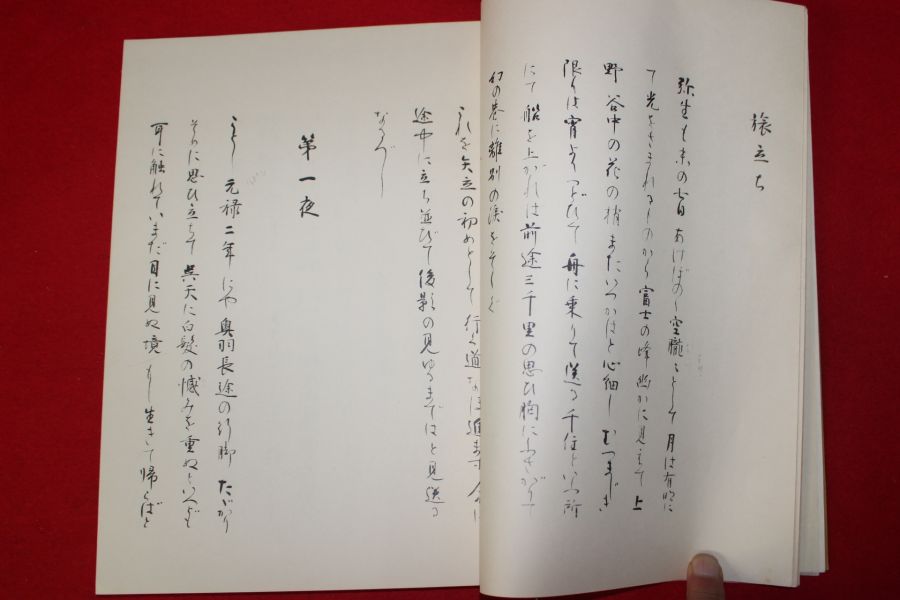 旅立ち
弥生も末の七日 あけぼのの空朧々として 月は有明に
て光をさまれるものから 富士の峰幽かに見えて 上
野 谷中の花の梢またいつかはと心細し むつまじき
限りは宵よりつどひて 舟に乗りて送る 千住といふ所
にて船を上がれば 前途三千里の思ひ胸にふさがりて
幻の巷に離別の涙をそそぐ
これを矢立の初めとして 行く道なほ進まず 人々は
途中に立ち並びて 後影の見ゆるまではと見送る
なるべし
第一夜
ことし 元禄二年にや 奥羽長途の行脚 ただかり
そめに思ひ立ちて 呉天に白髪の憾みを重ぬといへども
耳に触れていまだ目に見ぬ境 もし生きて帰らばと